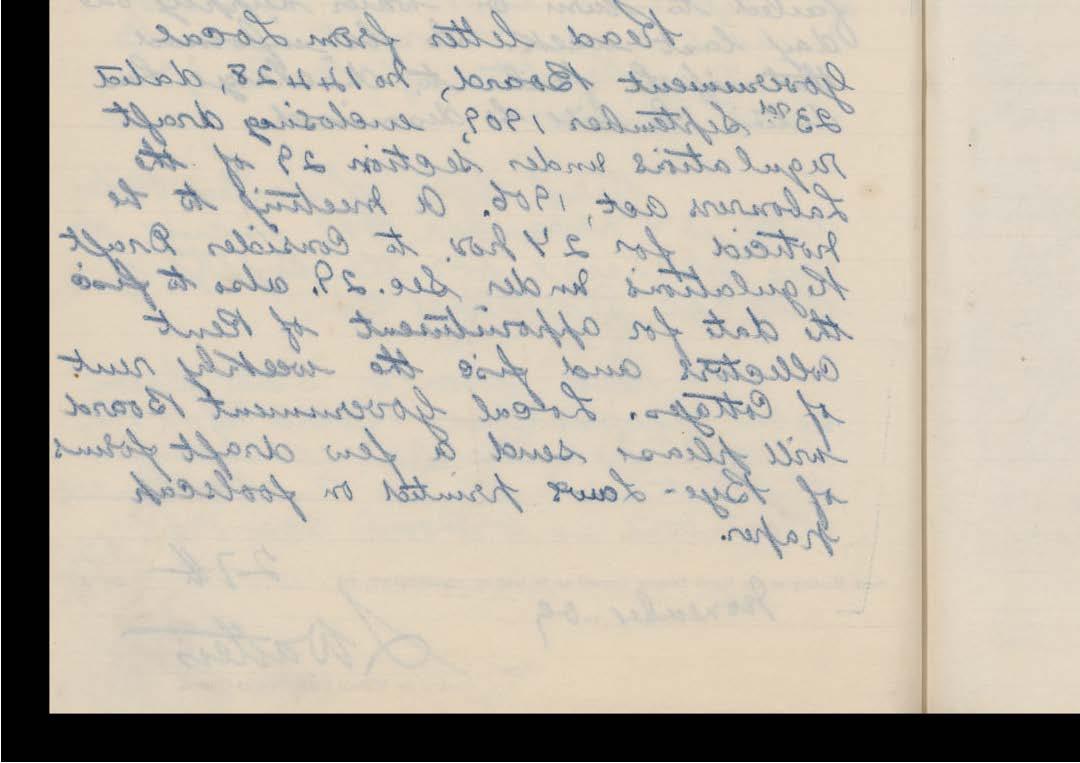 Read letter from Local
Government Board, No 14428, dated
23rd September 1909, enclosing draft
regulations under section 29 of the
Labourers Act, 1906. A meeting to be
noticed for 27 Nov. to consider Draft
Regulations under Sec. 29. also to fix
the date for appointment of Rent
Collectors and fix the weekly rent
of Cottages. Local Government Board
will please send a few draft forms
of Bye-Laws printed on foolscap
paper.
27th
November 09